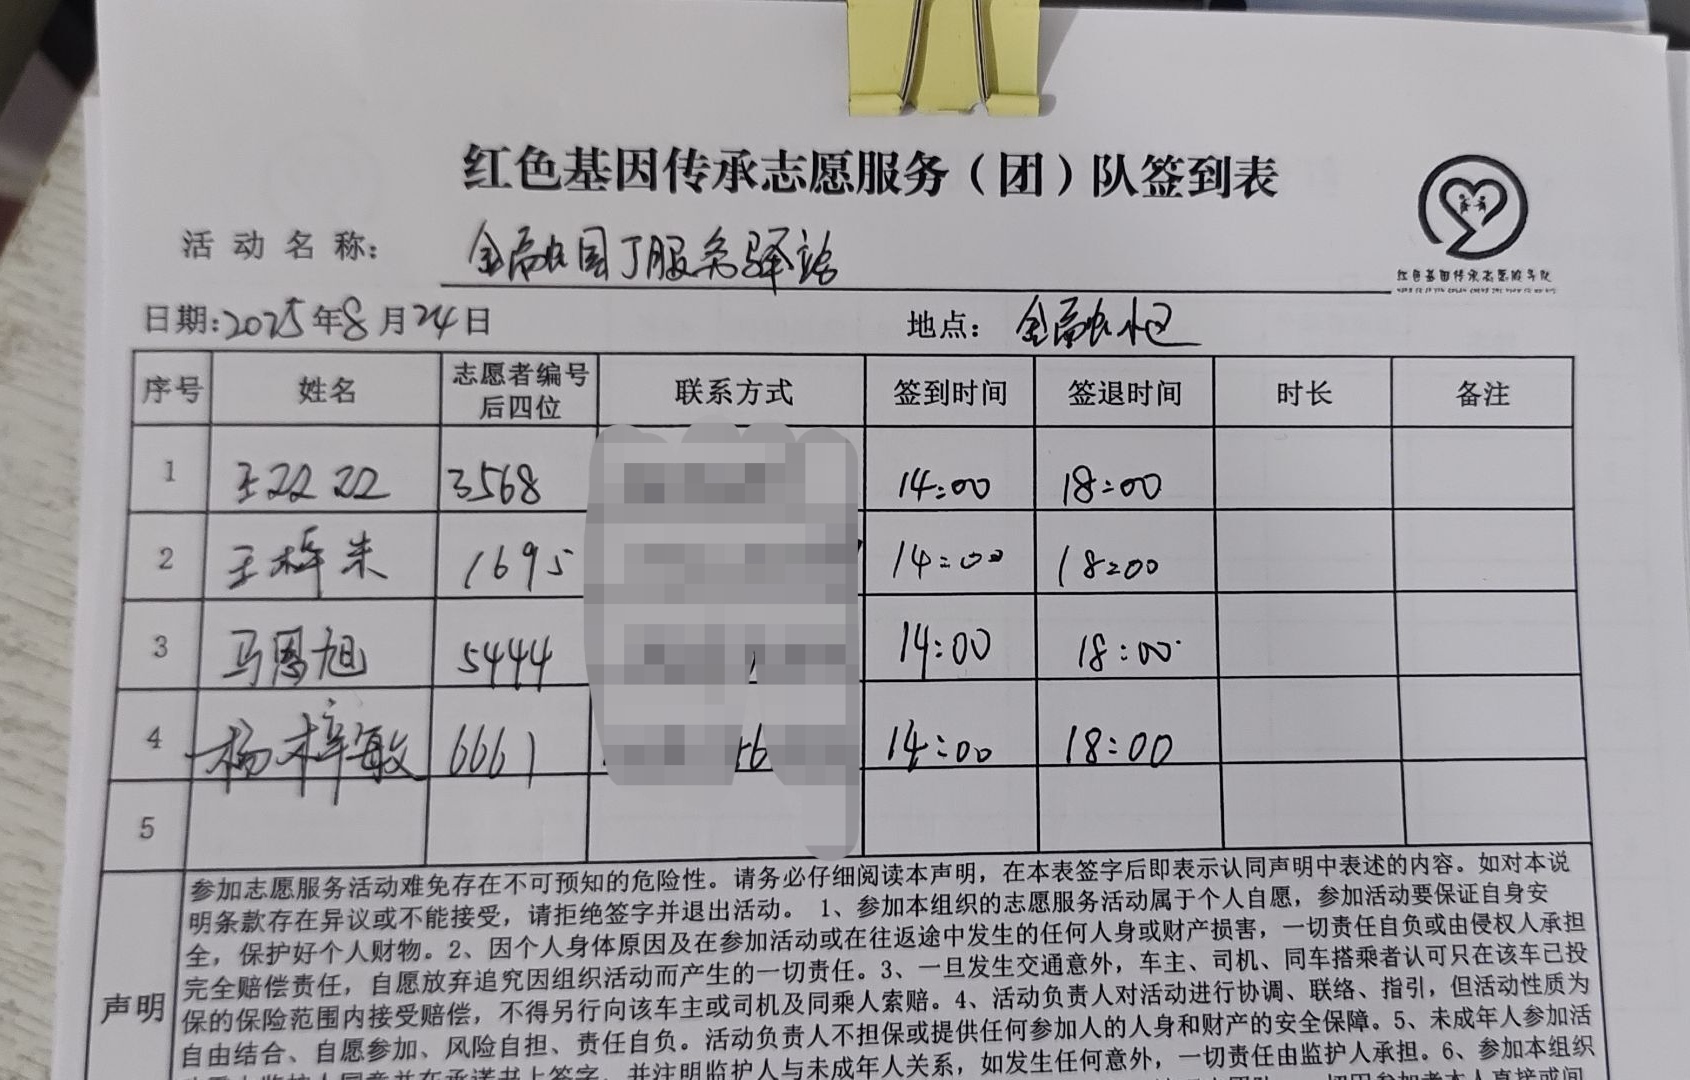 红色基因传承志愿服务（团）队签到表
红色基因传承志愿服务队
活动名称： 金融园丁服务驿站
日期:2025年8月24日 地点： 金融小巴
序号 姓名 志愿者编号后四位 联系方式 签到时间 签退时间 时长 备注
1 王 3568 14:00 18:00
2 王梓朱 1695 14:00 18:00
3 马恩旭 5444 14:00 18:00
4 杨梓敏 6661 14:00 18:00
5
声明
参加志愿服务活动难免存在不可预知的危险性。请务必仔细阅读本声明，在本表签字后即表示认同声明中表述的内容。如对本说
明条款存在异议或不能接受，请拒绝签字并退出活动。 1、参加本组织的志愿服务活动属于个人自愿，参加活动要保证自身安
全，保护好个人财物。2、因个人身体原因及在参加活动或在往返途中发生的任何人身或财产损害，一切责任自负或由侵权人承担
完全赔偿责任，自愿放弃追究因组织活动而产生的一切责任。3、一旦发生交通意外，车主、司机、同车搭乘者认可只在该车已投
保的保险范围内接受赔偿，不得另行向该车主或司机及同乘人索赔。4、活动负责人对活动进行协调、联络、指引，但活动性质为
自由结合、自愿参加、风险自担、责任自负。活动负责人不担保或提供任何参加人的人身和财产的安全保障。5、未成年人参加活
并注明监护人与未成年人关系，如发生任何意外，一切责任由监护人承担。6、参加本组织